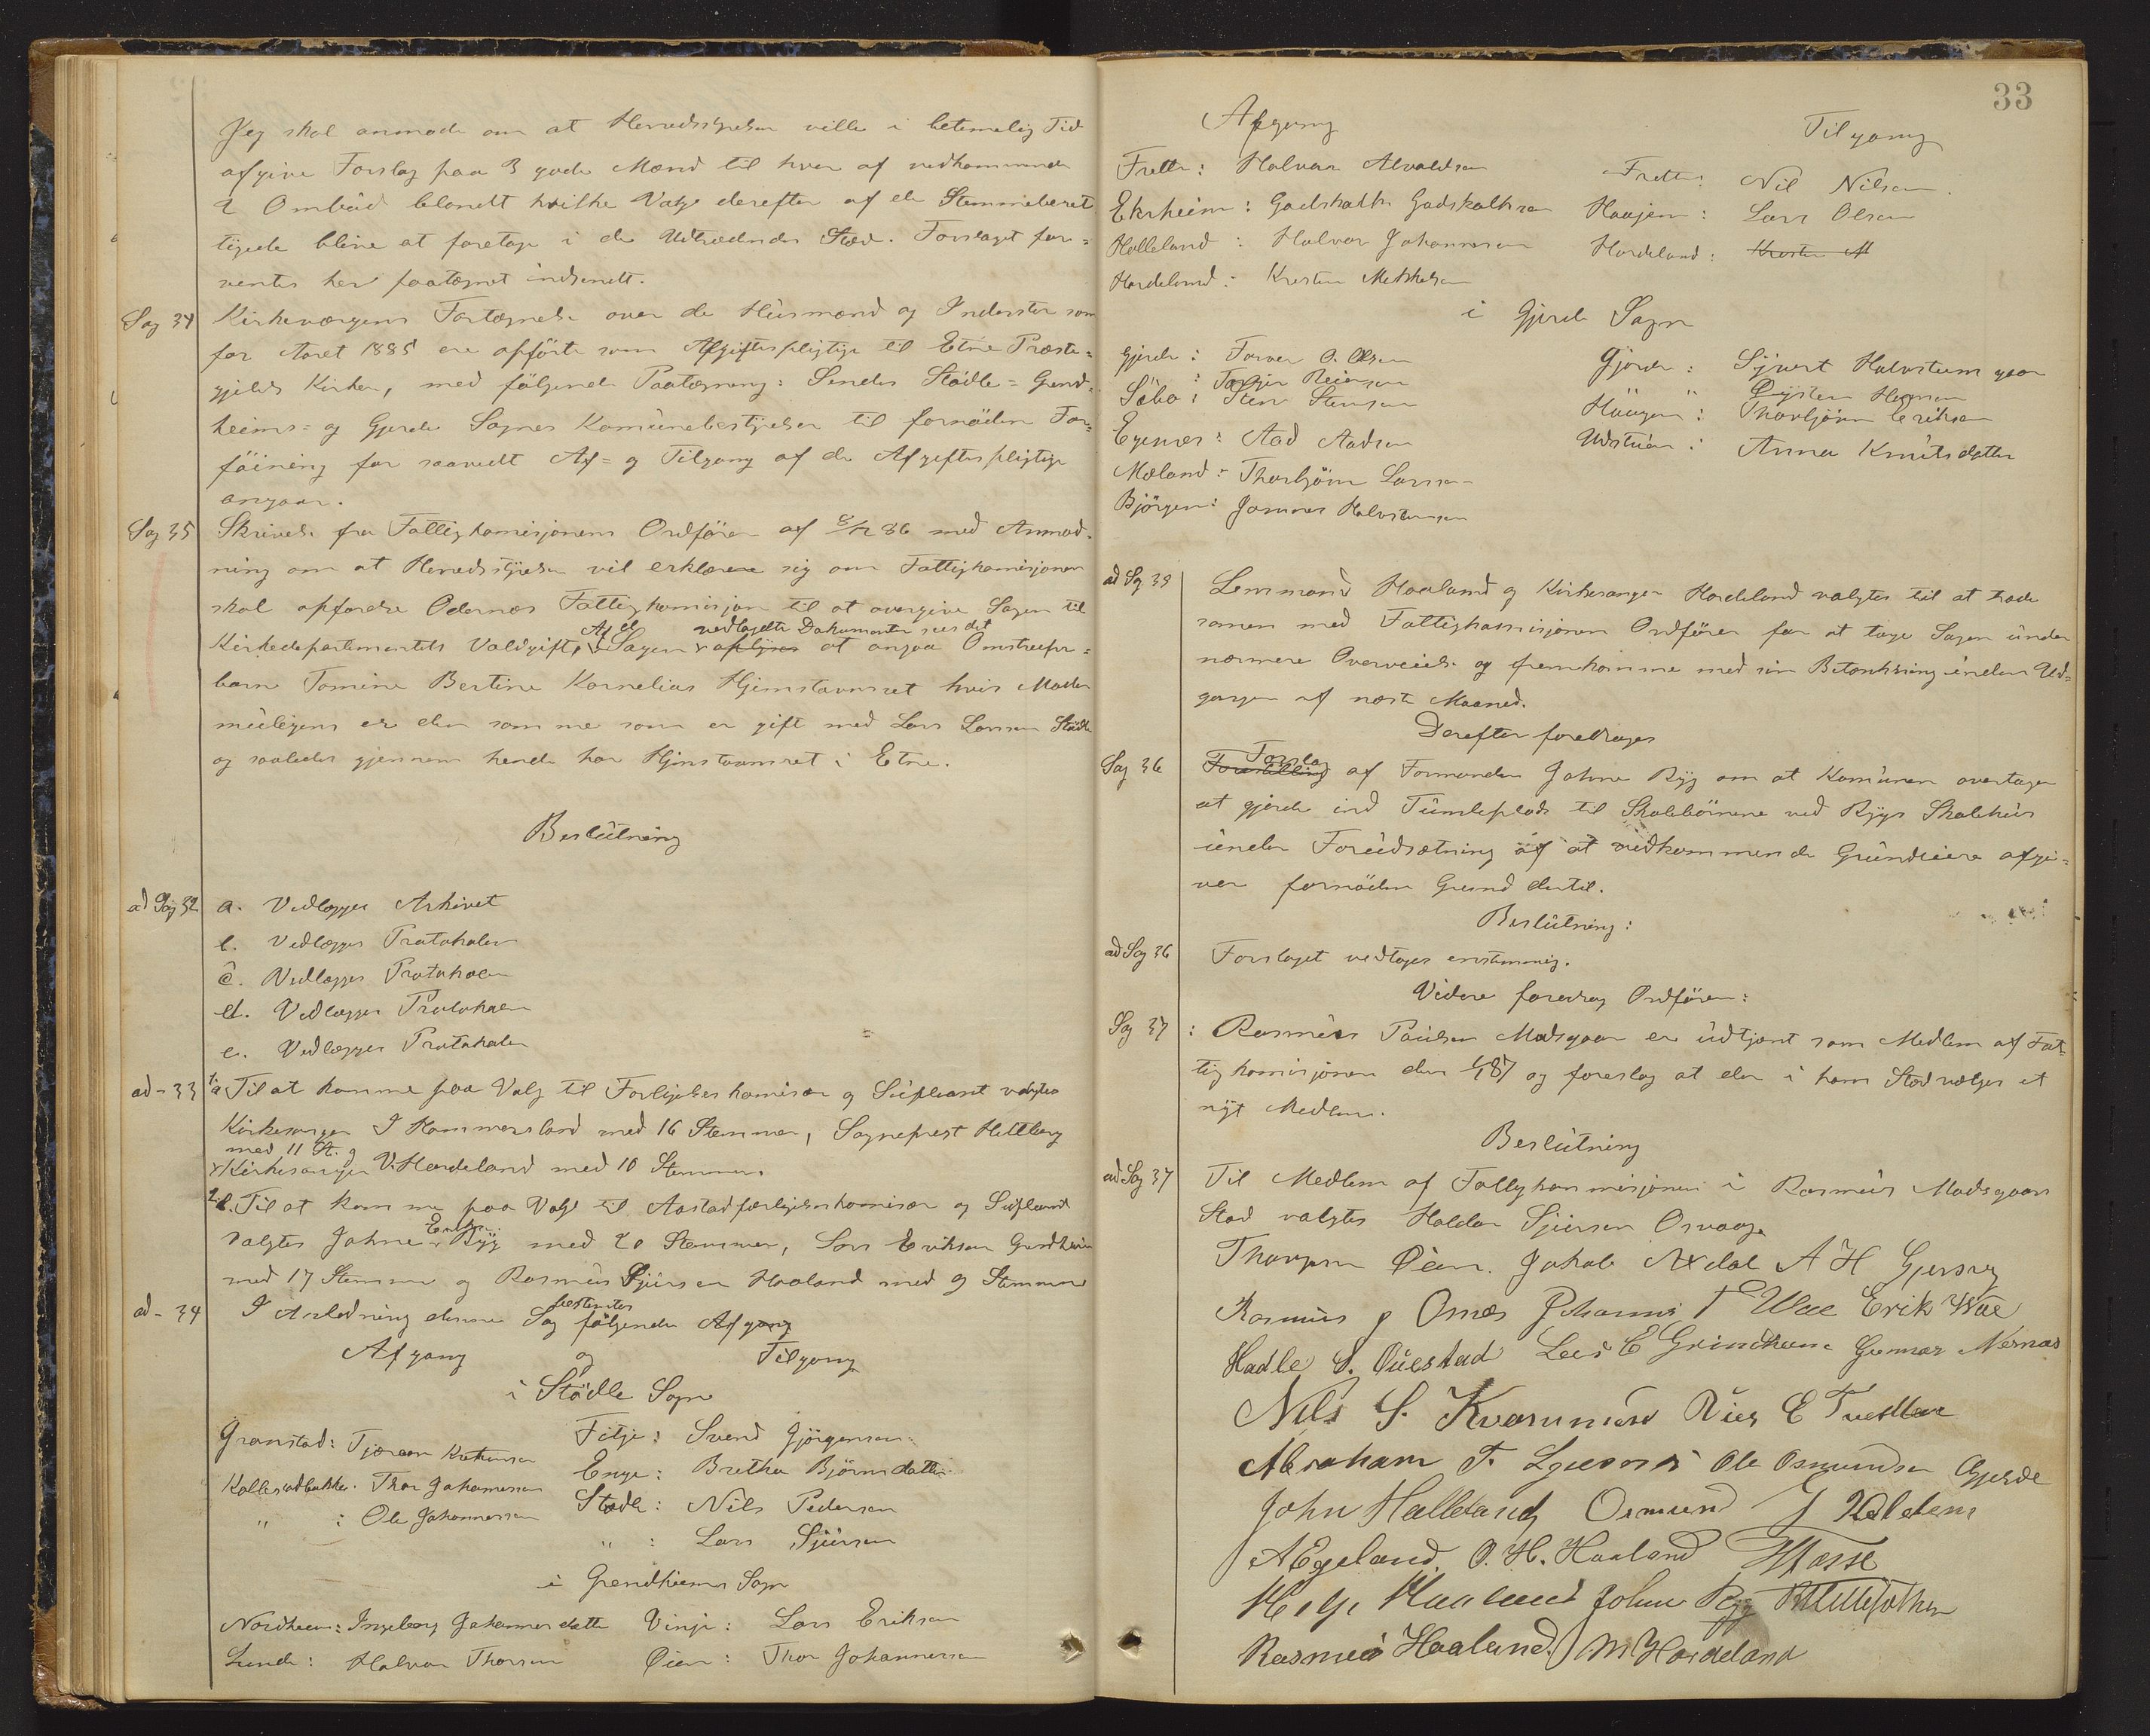 Jeg skal anmode om at Herredsstyrelsen ville i betimelig Tid
afgive Forslag paa 3 gode Mænd til hver af vedkommende
2 Ombud blandt hvilke Valge derefter af de Stemmeberet
tigede blive at foretage i de Udtrædendes Sted. Forslaget for=
ventes her paategnet indsendt.
Sag 34 Kirkeværgens Fortegnelse over de Husmænd og Inderster som
for Aaret 1885 ere opförte som Afgiftspligtige til Etne Præste=
gjelds Kirker, med fölgende Paategning: Sendes Stödle= Grind=
heims= og Gjerde Sognes Komunebestyrelser til fornöden For=
föining for saavidt Af= og Tilgang af de Afgiftspligtige
angaar.
Sag 35 Skrivelse fra Fattigkomisjonens Ordförer af 8/12 86 med Anmod=
ning om at Herredsstyrelsen vil erklære sig om Fattigkomisjonen
skal opfordre Odernæs Fattigkomisjon til at overgive Sagen til
Af de vedlagte Dokumenter sees det
Kirkedepartementets Voldgift, Sagen oplyses at angaa Omstreifer=
barn Tomine Bertine Kornelias Hjemstavnsret hvis Moder
muligens er den samme som er gift med Lars Larsen Stödle
og saaledes gjennem hende har Hjemstavnsret i Etne.
Beslutning
ad Sag 32 a. Vedlægges Arkivet
b. Vedlægges Protokolen
c. Vedlægges Protokolen
d. Vedlægges Protokolen
e. Vedlægges Protokolen
ad - 33 1. a Til at komme paa Valg til Forligelseskomisær og Supleant valgtes
Kirkesanger I Kammersland med 16 Stemmer, Sogneprest Hettberg
med 11 St. og
Kirkesanger V. Hardeland med 10 Stemmer.
2. Til at komme paa Valg til Aastadforligelseskomisær og Supleant
Eriks.
valgtes Johne Ryg med 20 Stemmer, Lars Eriksen Grindheim
med 17 Stemmer og Rasmus Sjursen Haaland med 9 Stemmer
bestemtes
ad - 34 I Anledning denne Sag fölgende Afgang
Afgang og Tilgang
i Stödle Sogn
Granstad: Tjæran Kristensen Fitje: Svend Gjörgensen
Kollesadbakke: Thor Johannessen Enge: Bretha Björnsdatter
" : Ole Johannessen Stödle: Nils Pedersen
" : Lars Sjursen
i Grindheims Sogn
Nordheim: Ingeborg Johannesdatter Vinje: Lars Eriksen
Lunde: Halvor Thorsen Öien: Thor Johannessen
33
Afgang Tilgang
Frette: Halvor Alvaldsen Frette: Nil Nilsen.
Ekrheim: Gadskalk Gadskalksen Haajem: Lars Olsen
Halleland: Halvor Johannesen Hardeland: Kresten M
Hardeland: Kresten Mekkelsen
i Gjerde Sogn
Gjerde: Torver O. Olsen Gjerde: Sjvert Halvstensgaar
" : Torger Reiersen " Öysten Hansen
Söbö: Sten Stensen Haugen: Thorbjörn Eriksen
Egenes: Aad Aadsen Udstuen: Anna Knutsdatter
Mæland: Thorbjörn Larsen
Björgen: Jannes Halvstensen
ad Sag 35 Lensmand Haaland og Kirkesanger Hardeland valgtes til at træde
samen med Fattigkomisjonens Ordförer for at tage Sagen under
nærmere Overveielse og fremkomme med sin Betænkning inden Ud=
gangen af næste Maaned.
Derefter foredrages
Forslag
Sag 36 Forestilling af Formanden Johne Ryg om at Komunen overtager
at gjerde ind Tumleplads til Skolebörnene ved Rygs Skolehus
under Forudsætning af at vedkommende Grundeiere afgi=
ver fornöden Grund dertil.
Beslutning:
ad Sag 36 Forslaget vedtages enstemmig.
Videre foredrag Ordförer:
Sag 37 : Rasmus Paulsen Madsgaar er udtjent som Medlem af Fat=
tigkomisjonen den 1/1 87 og foreslog at der i hans Sted vælges et
nyt Medlem.
Beslutning
ad Sag 37 Til Medlem af Fattigkommisjonen i Rasmus Madsgaars
Sted valgtes Haldor Sjursen Osvaage
Thorgern Öien. Jakob Axdal A H Gjersvg
Rasmus P Omæs Johannes T Wee Erik Wae
Hadle S. Öuestad Lars E Grindheim Gunnar Nernæs
Nils S. Kvammen Rier E Tvedten
Abraham T. Lgusnes Ole Osmundsen Gjerde
John Halleland Osmund J Kaldem
A Egeland. O. H. Haaland H Masse
Helge Haaland Johne Ryg
Rasmus Haaland. M Hardeland